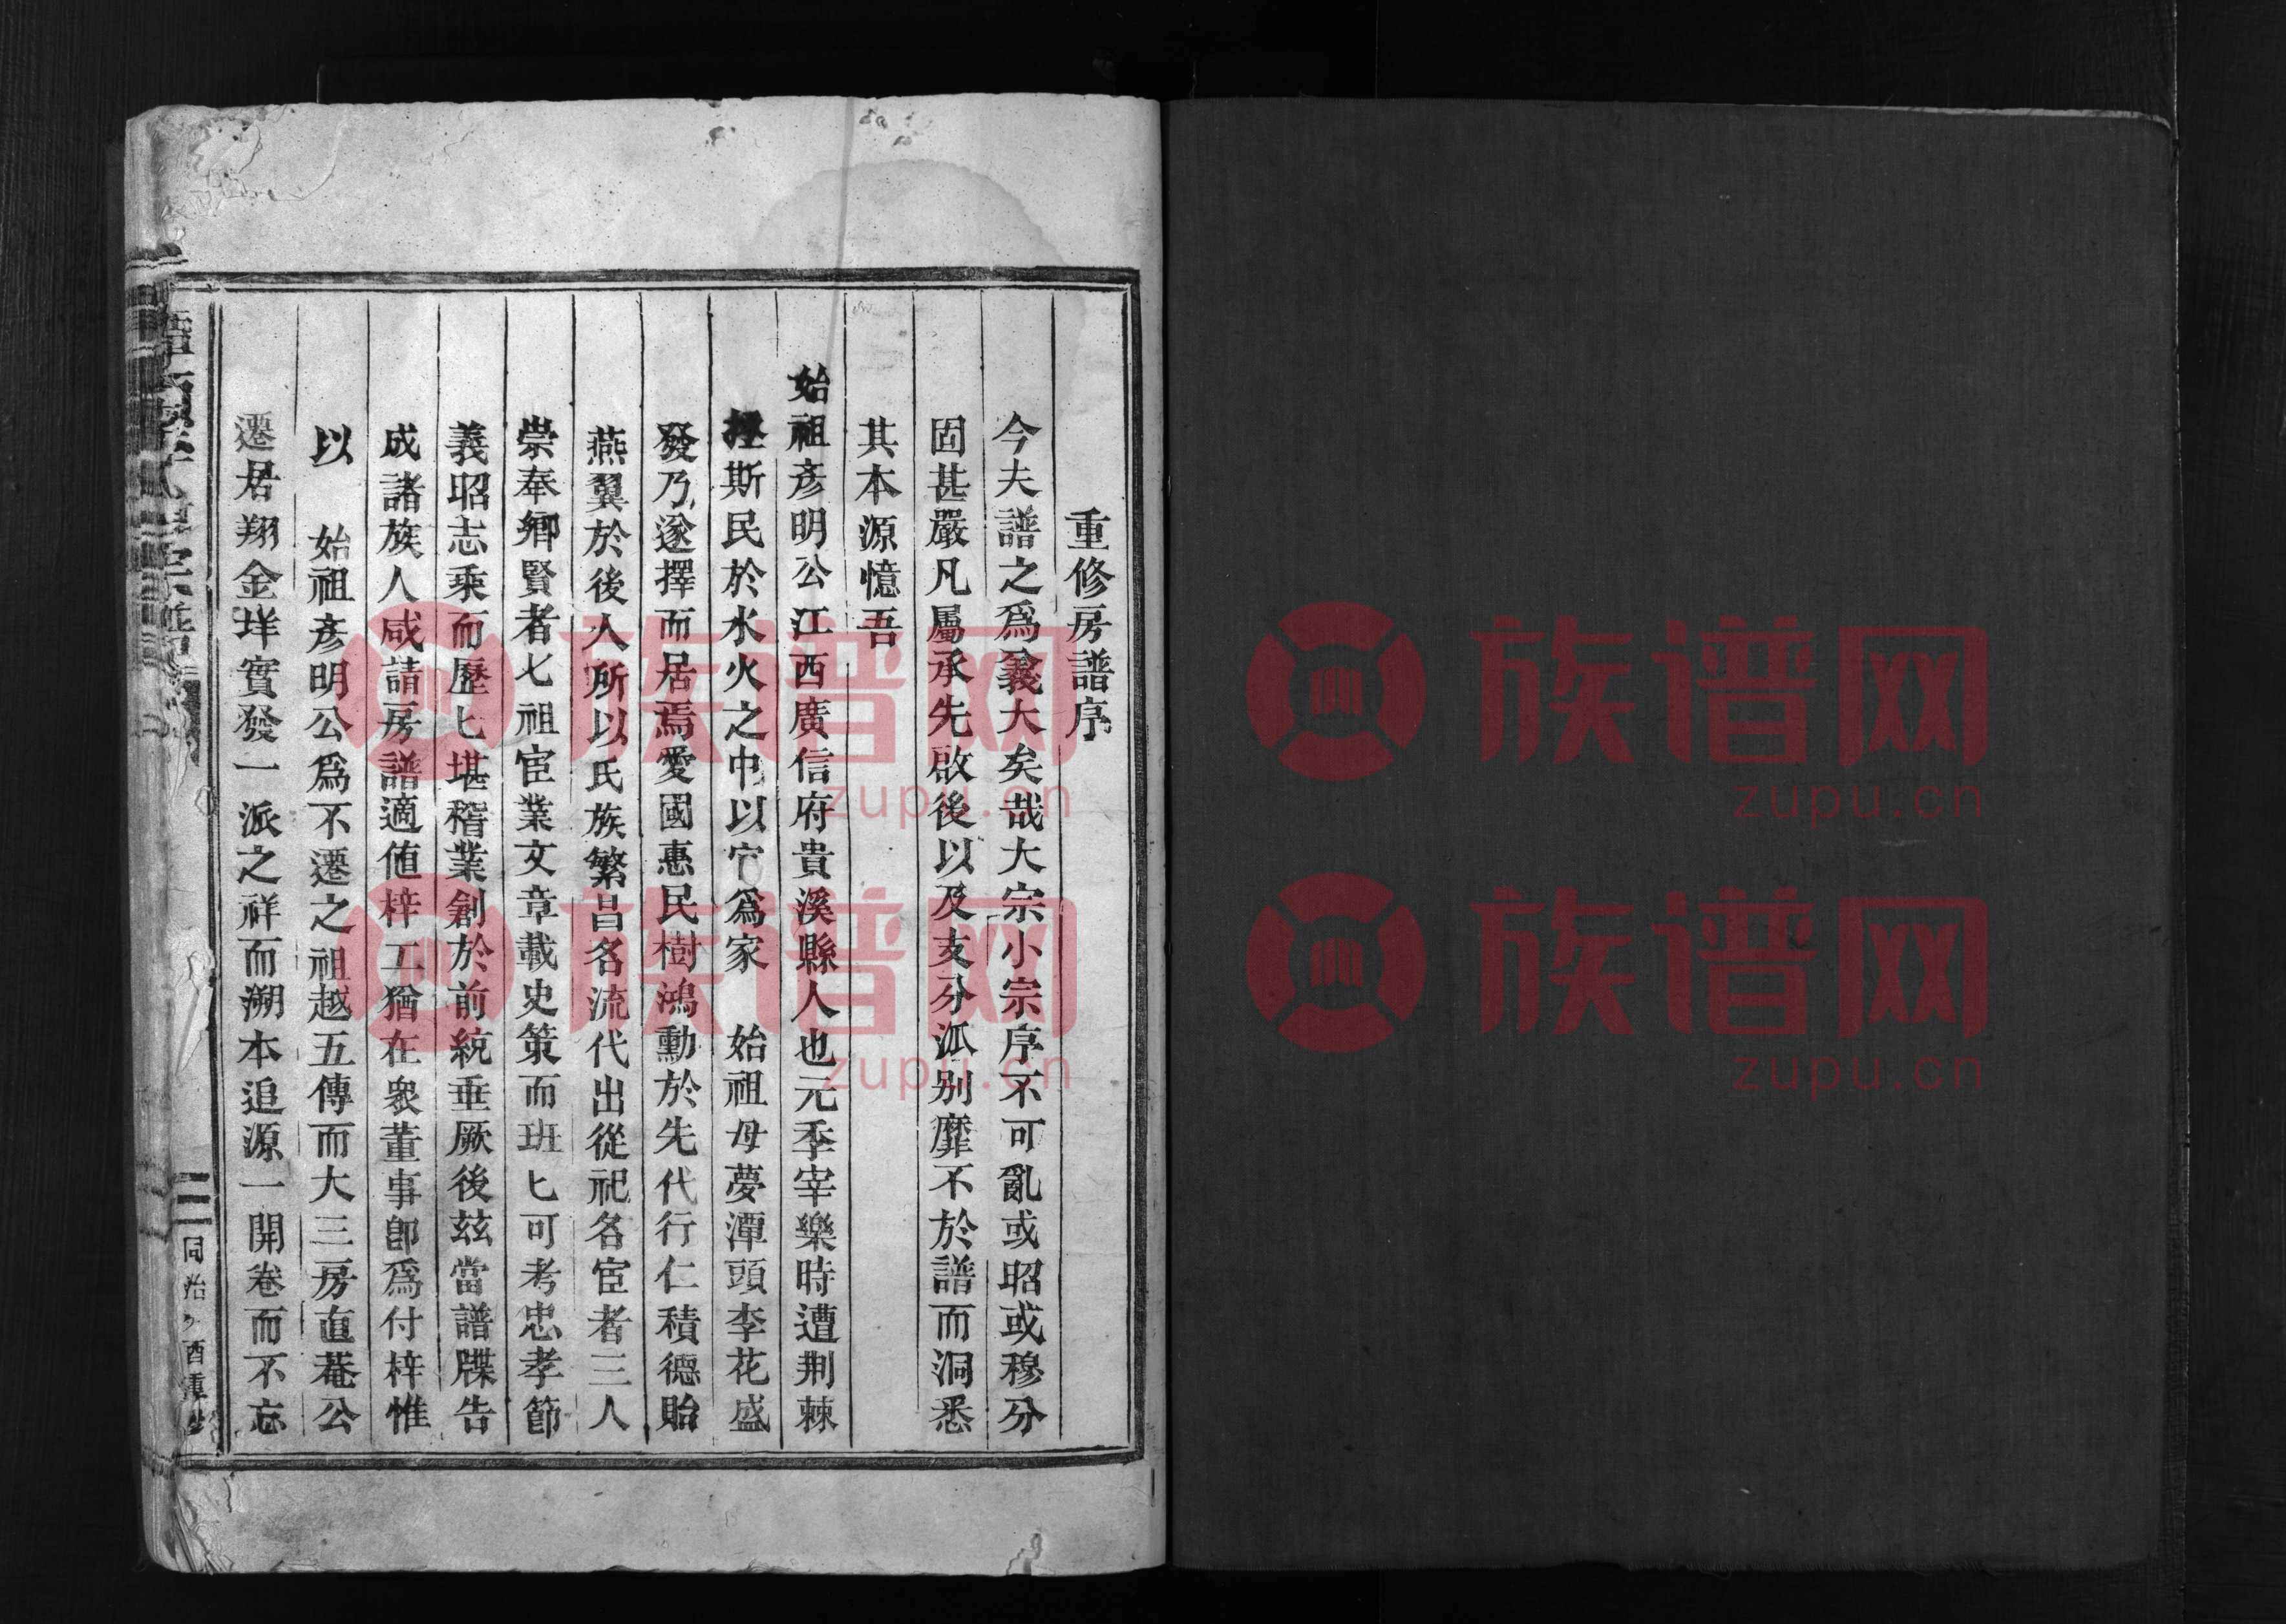 重修房譜序
今夫譜之爲義大矣哉大宗小宗序不可亂或昭或穆分
固甚嚴凡屬承先啟後以及支分派別靡不於譜而洞悉
其本源憶吾
始祖彥明公江西廣信府貴溪縣人也元季宰樂時遭荆棘
拯斯民於水火之中以官爲家 始祖母夢潭頭李花盛
發乃遂擇而居焉愛國惠民樹鴻勳於先代行仁積德貽
燕翼於後人所以氏族繁昌名流代出從祀名宦者三人
崇奉鄉賢者七祖宦業文章載史策而班匕可考忠孝節
義昭志乘而歷匕堪稽業創於前統垂厥後茲當譜牒告
成諸族人咸請房譜適值梓工猶在衆董事卽爲付梓惟
以 始祖彥明公爲不遷之祖越五傳而大三房直菴公
遷居翔金垟實發一派之祥而溯本追源一開卷而不忘
李氏宗譜
同治 酉重
族谱网
zupu.cn
族谱网
zupu.cn
族谱网
zupu.cn
族谱网
zupu.cn